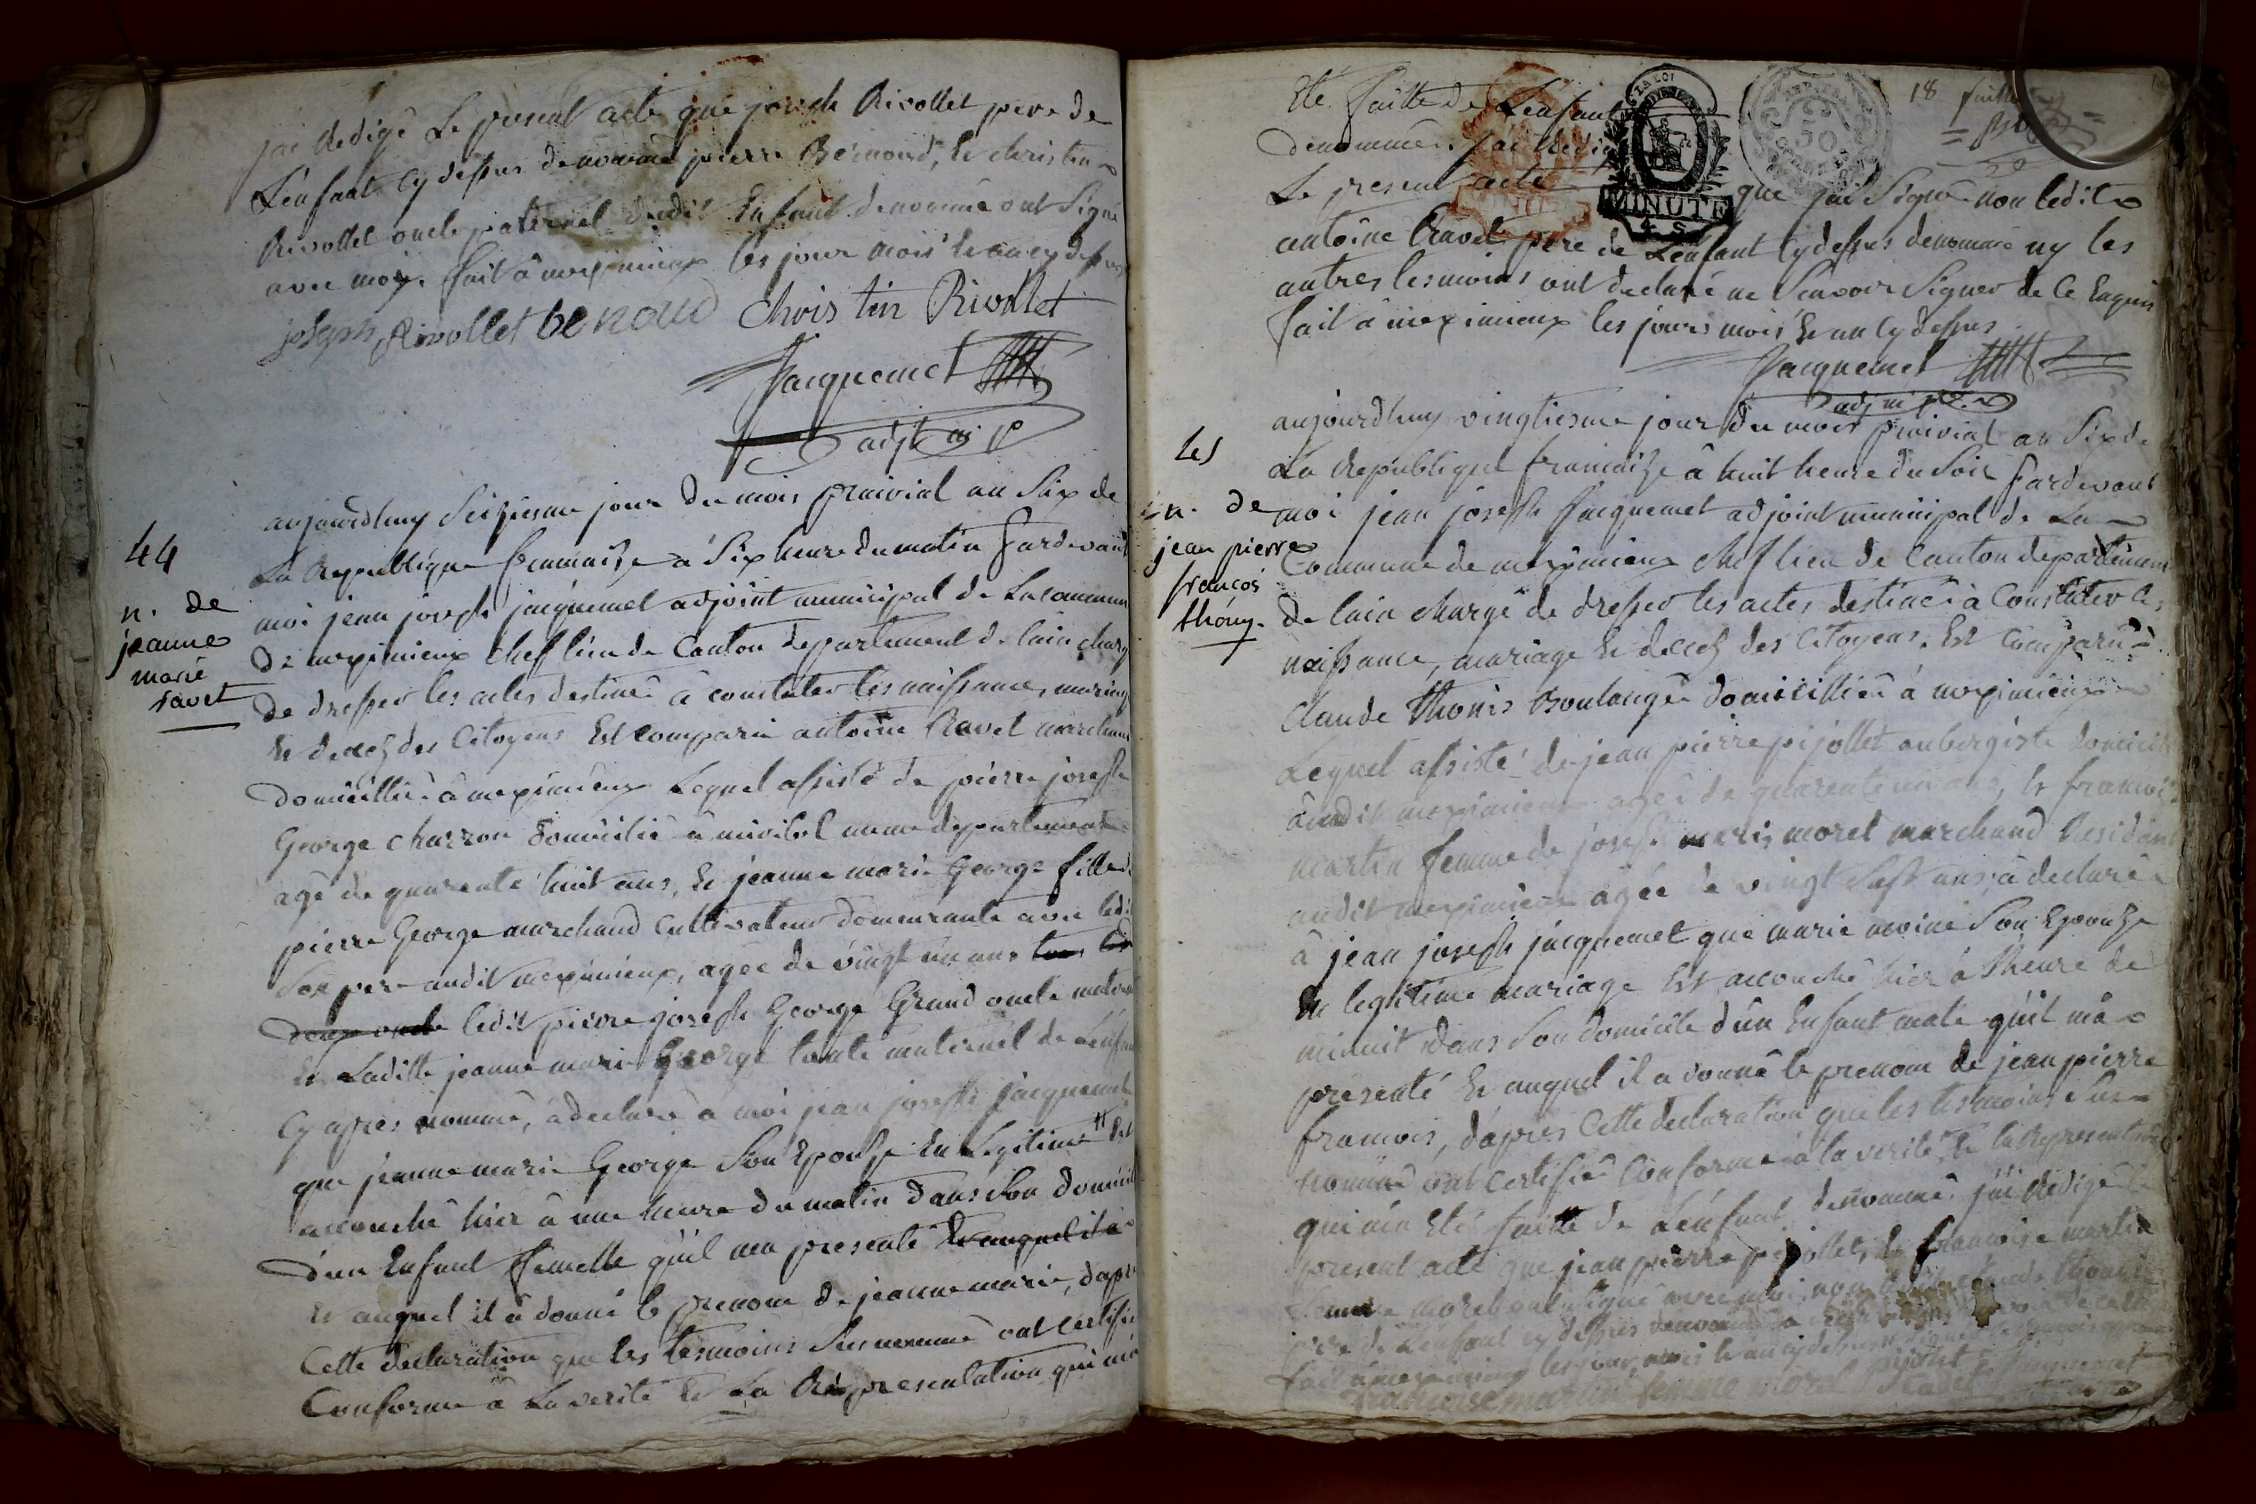 j'ai redigé Le present acte que joseph Rivollet pere de
L'enfant cy dessus denommé pierre Bernoud, et christin
Rivollet oncle paternel dudit Enfant denommé ont Signé
avec moy. fait â meximieux les jour mois et an cy dessus
joseph Rivollet benoud Christin Rivollet
Jacquemet
adjt mp
44
n. de
jeanne
marie
ravet
aujourdhuy Seiziesme jour du mois prairial an Six de
La Republique francaise â Six heure du matin Pardevant
moi jean joseph jacquemet adjoint municipal de La commune
De meximieux cheflieu de Canton departement de lain chargé
de dresser les actes destinés â constater les naissance, mariage
et deces des Citoyens Est comparu antoine Ravet marchand
domicillié â meximieux Lequel assisté de pierre joseph
George charron domicilié â miribel meme departement
agé de quarente huit ans, et jeanne marie George fille de
pierre George marchand Cultivateur demeurante avec ledit
Son pere audit meximieux, agée de vingt un ans
ledit pierre joseph George Grand oncle maternel
et Laditte jeanne marie George tante maternel de L'enfant
Cy apres nommé, â declaré â moi jean joseph jacquemet
que jeanne marie George Son Epouse En Legitime Est
accouché hier â une heure du matin dans Son domicile
d'un Enfant femelle qu'il ma presenté et auquel il a
et auquel il â donné le prenom de jeanne marie, dapres
Cette declaration que les tesmoins Susnommé ont certifié
Conforme â La verité et La Representation qui m'a
18 feuillet
Eté faitte de L'enfant
denommée. j'ai Redigé
Le present acte que j'ai Signé non ledit
antoine Ravet pere de L'enfant Cy dessus denommé ny les
autres tesmoins ont declaré ne Scavoir Signer de ce Enquis
fait â meximieux les jours mois et an Cy dessus
Jacquemet
adj m pl
LA LOI
MINUTE
4 S
50
n. de
jean pierre
francois
thony.
aujourdhuy vingtiesme jour du mois prairial an Six de
La Republique francaise â huit heure du Soir Pardevant
moi jean joseph Jacquemet adjoint municipal de La
Commune de meximieux chef lieu de Canton departement
de lain chargé de dresser les actes destinés â Constater les
naissance, mariage et deces des Citoyens. Est Comparu
Claude thonis Boulangé domicillié â meximieux
Lequel assisté de jean pierre pijollet aubergiste domicilié
audit meximieux agé de quarente un ans, et francoise
martin femme de joseph marie morel marchand Residant
audit meximieux agée de vingt Sept ans, â declaré
â jean joseph jacquemet que marie moine Son Epouse
En legitime mariage Est accouché hier â l'heure de
minuit dans Son domicile d'un Enfant male qu'il mâ
presenté et auquel il a donné le prenom de jean pierre
francois, dâpres Cette declaration que les tesmoins Sus
nommé ont Certifié Conforme â la verité, et la Representation
qui m'a Eté faitte de L'enfant denommé. j'ai Redigé le
present acte que jean pierre pijollet, et francoise martin
femme morel ont Signé avec moi, non claude
pere de L'enfant cy dessus denommé
fait â meximieux les jour, mois et an cy dessus
francoise martin femme morel pijolet Jacquemet